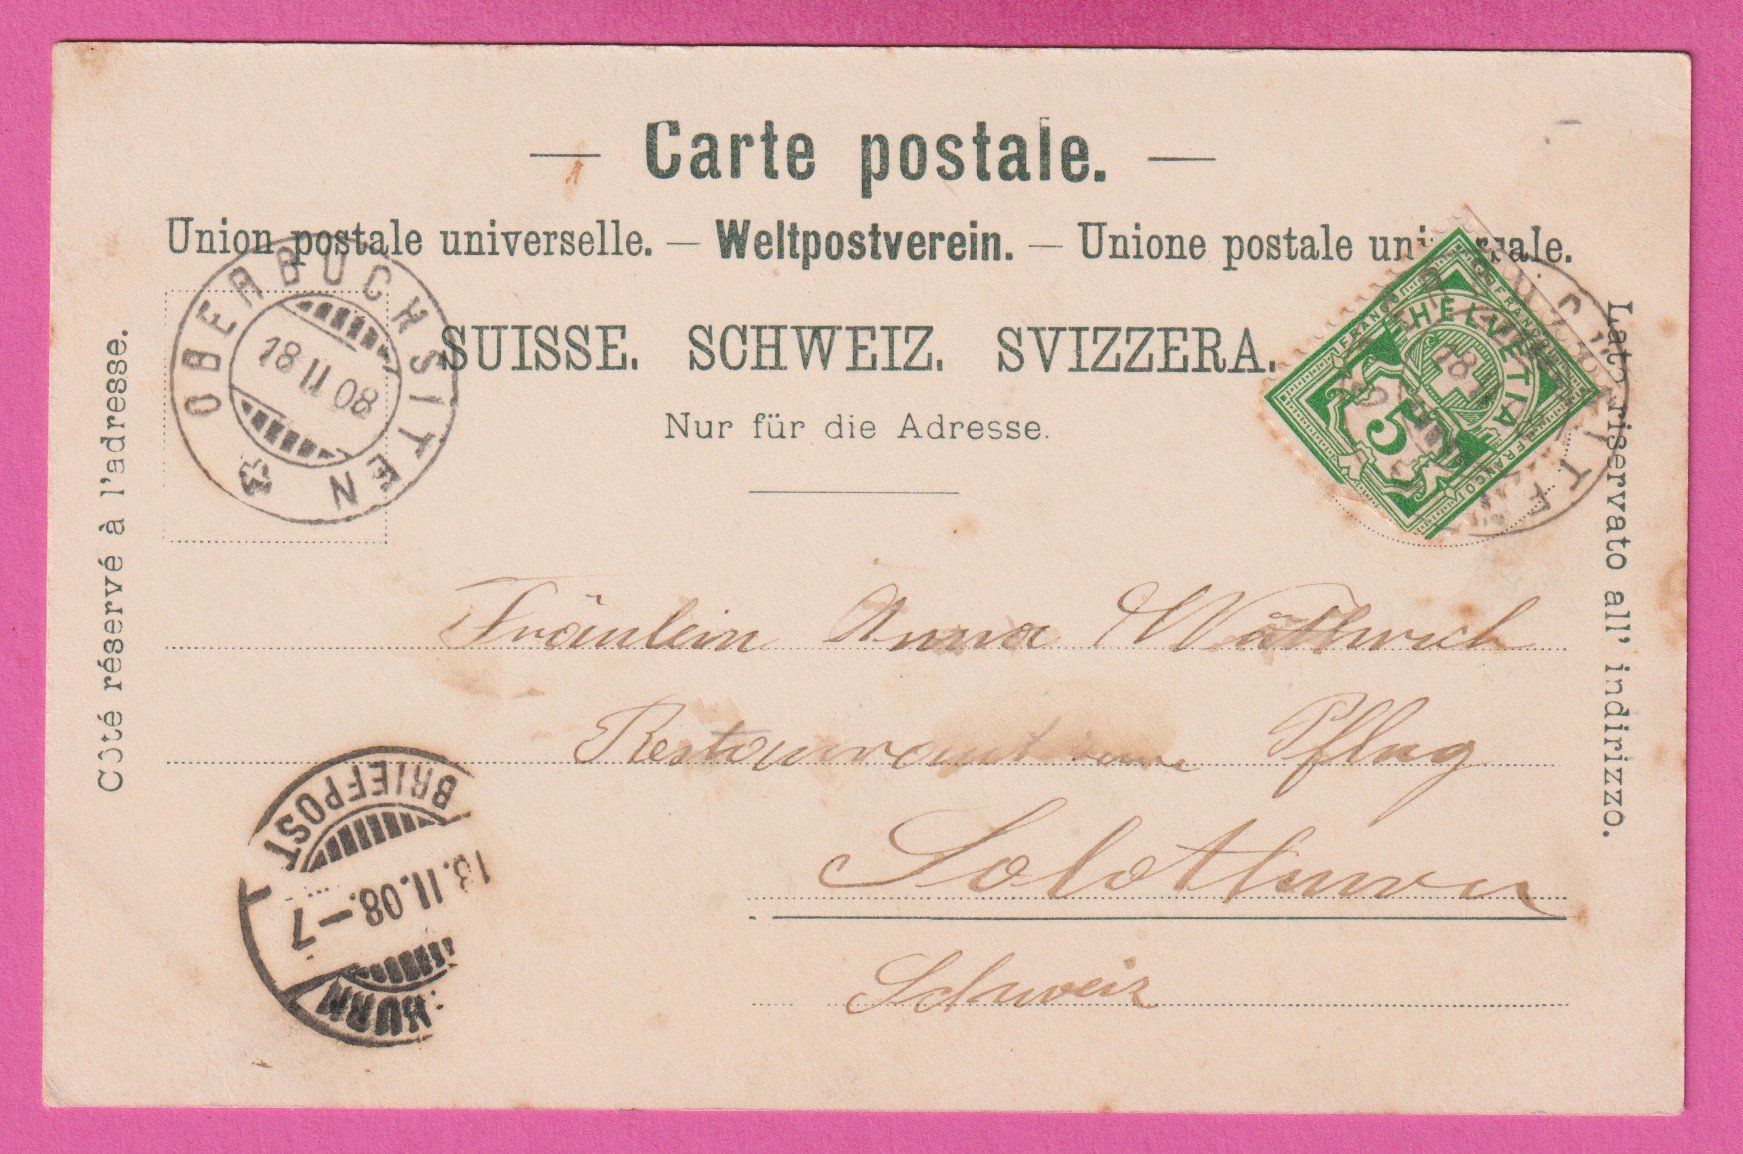 — Carte postale. —
Union postale universelle. — Weltpostverein. — Unione postale
SUISSE. SCHWEIZ. SVIZZERA.
Nur für die Adresse.
Côté réservé à l'adresse.
Lato riservato all' indirizzo.
OBERBUCHSITEN
18 II 08
FRANCO
HELVETIA
5
FRANCO
Fräulein Anna
Restaurant zum Pflug
Solothurn
Schweiz
BRIEFPOST
18.II.08.-7
HURN